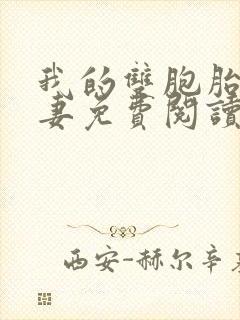 我的雙胞胎
妻免費閱讀
西安-赫尔辛